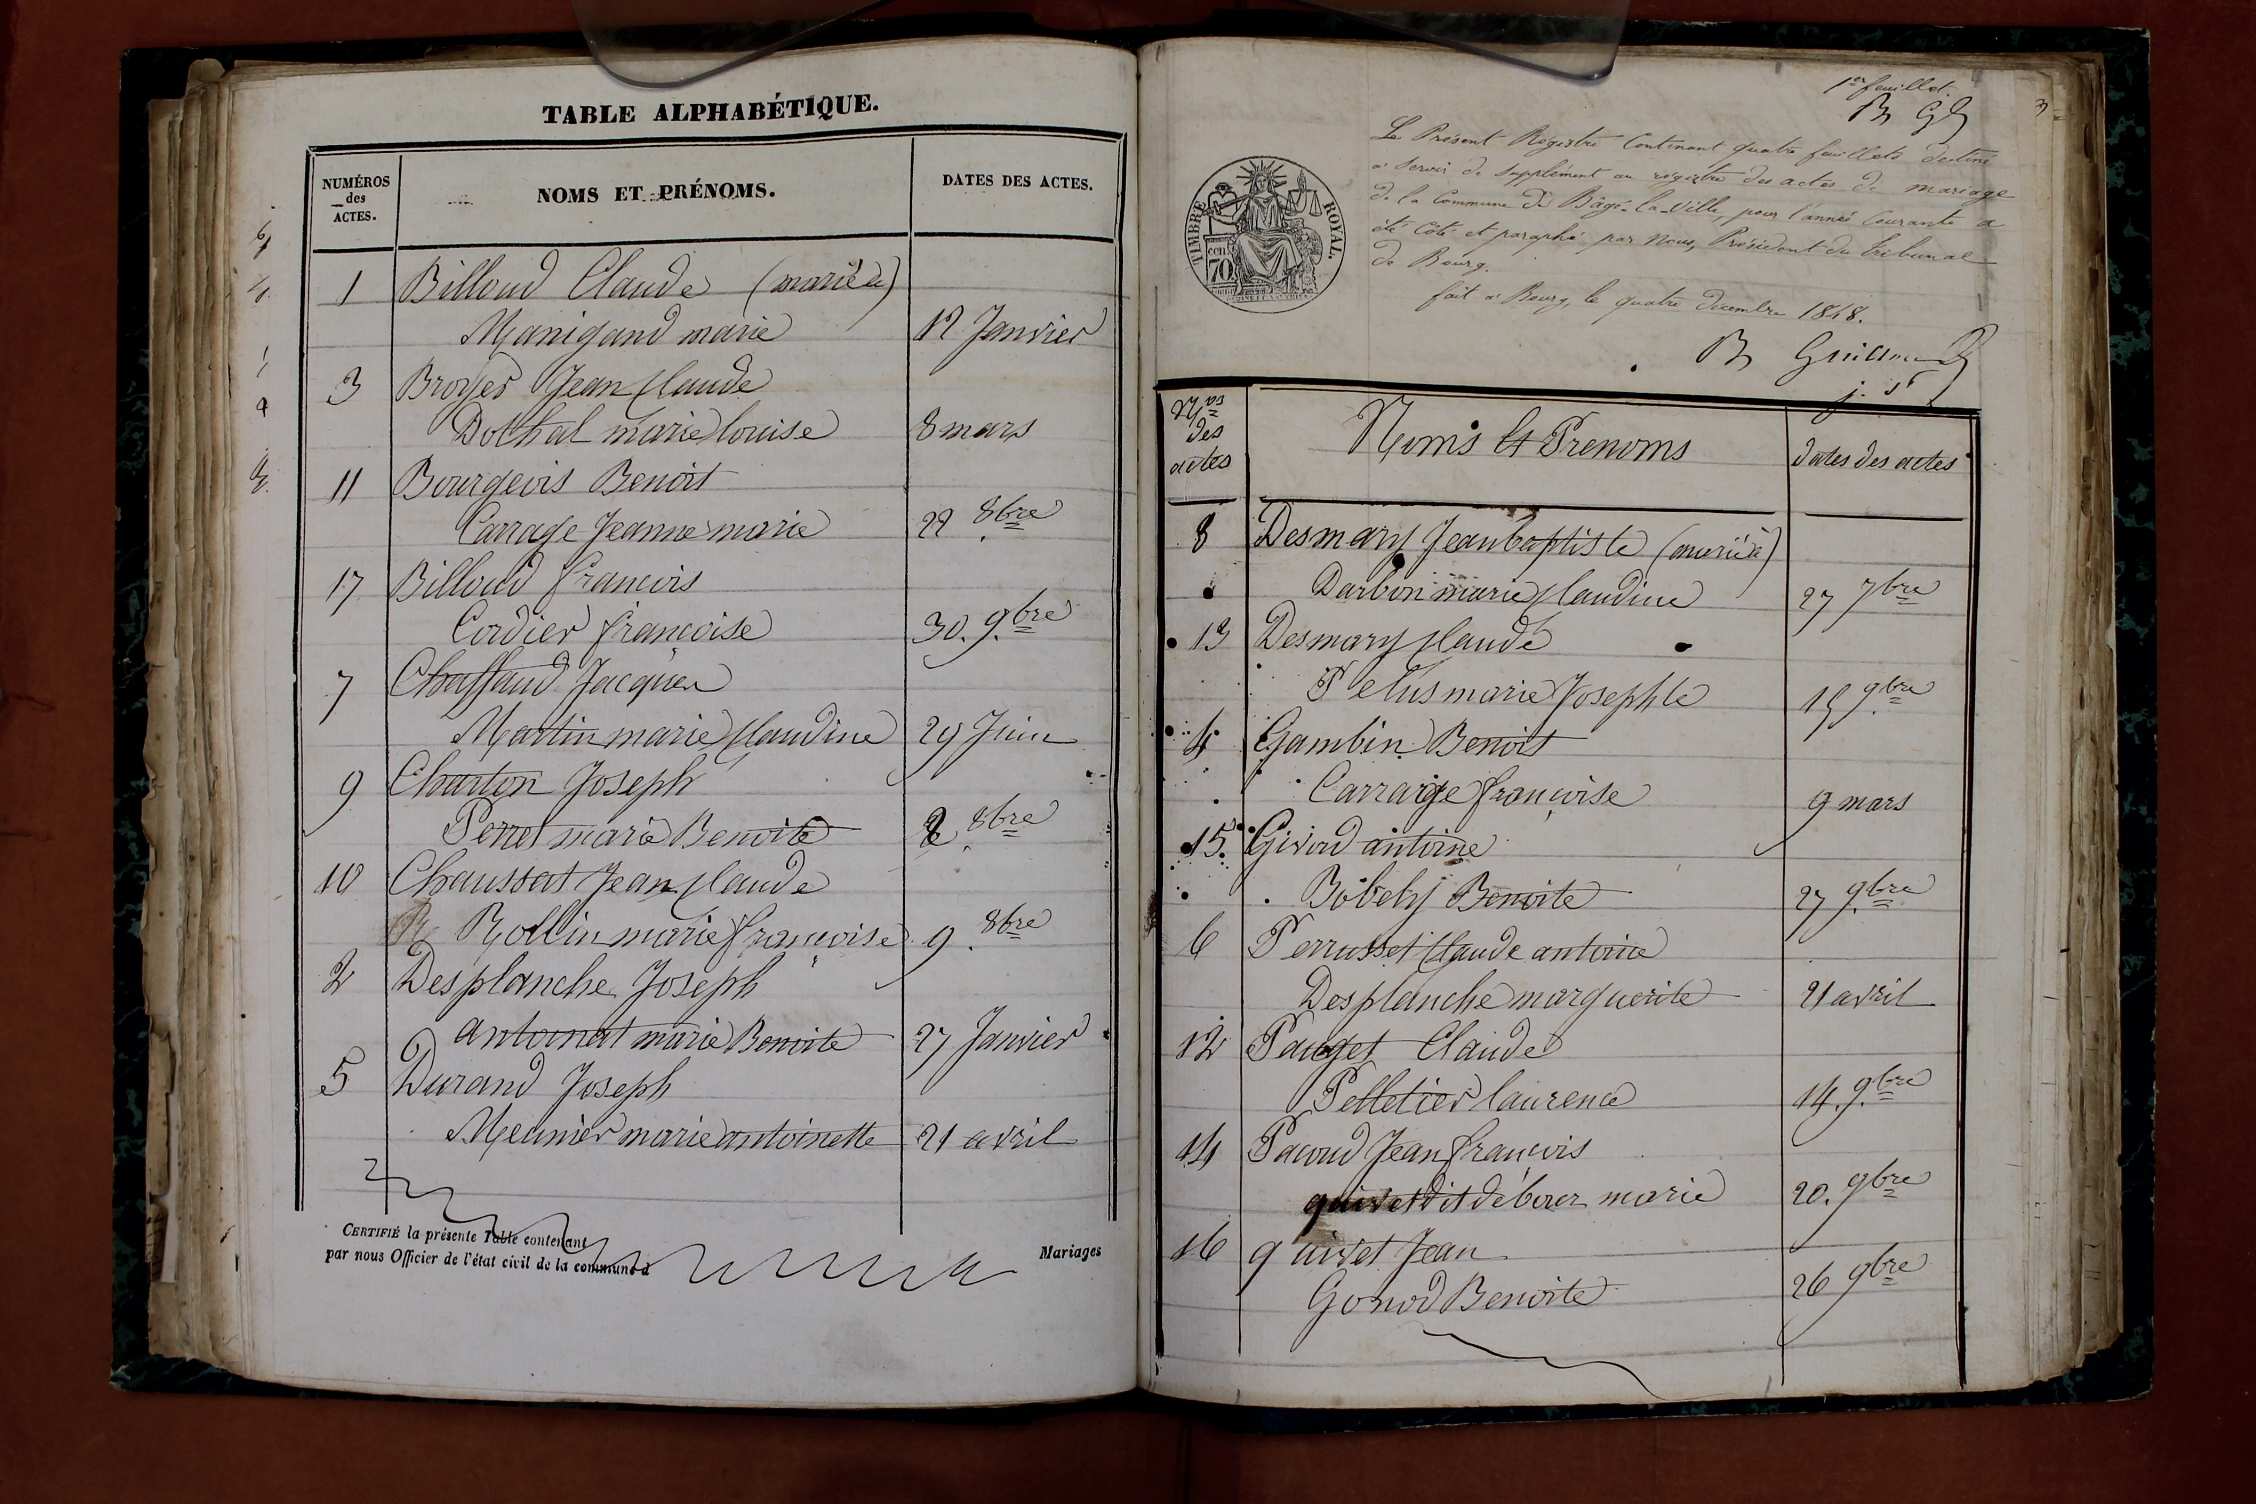 TABLE ALPHABÉTIQUE.
NUMÉROS
des
ACTES.
NOMS ET PRÉNOMS.
DATES DES ACTES.
1 Billoud Claude (marié à)
Manigand marie 12 Janvier
3 Broyer Jean Claude
Dothal marie louise 8 mars
11 Bourgeois Benoit
Carrage Jeanne marie 22 8bre
17 Billoud françois
Cordier françoise 30. 9bre
7 Chaffaud Jacques
Martin marie Claudine 29 Juin
9 Charton Joseph
Perret marie Benoite 8bre
10 Chaussat Jean Claude
Rollin marie françoise 9. 8bre
2 Desplanche Joseph
antoinat marie Benoite 27 Janvier
5 Durand Joseph
Meunier marie antoinette 21 avril
CERTIFIÉ la présente Table contenant
Mariages
par nous Officier de l'état civil de la commune d
1er feuillet.
3
Le Présent Registre Contenant quatre feuillets destiné
à Servir de Supplément au régistre des actes de mariage
de la Commune de Bâgé-la-Ville, pour l'année Courante a
été Coté et paraphé par Nous, Président du tribunal
de Bourg.
fait à Bourg, le quatre Décembre 1848.
TIMBRE ROYAL.
70
Nos
des
actes
Noms et Prenoms
dates des actes
8 Desmary Jean baptiste (marié à)
Darbon marie Claudine 27 7bre
13 Desmary Claude
Pelus marie Josephte 15 9bre
4 Gambin Benoit
Carraige françoise 9 mars
15. Girod antoine
Bobety Benoite 27 9bre
6 Perrusset Claude antoine
Desplanche marguerite 21 avril
12 Pauget Claude
Pelletier laurence 14. 9bre
14 Pacoud Jean françois
quivet dit déborer marie 20. 9bre
16 quivet Jean
Gonod Benoite 26 9bre